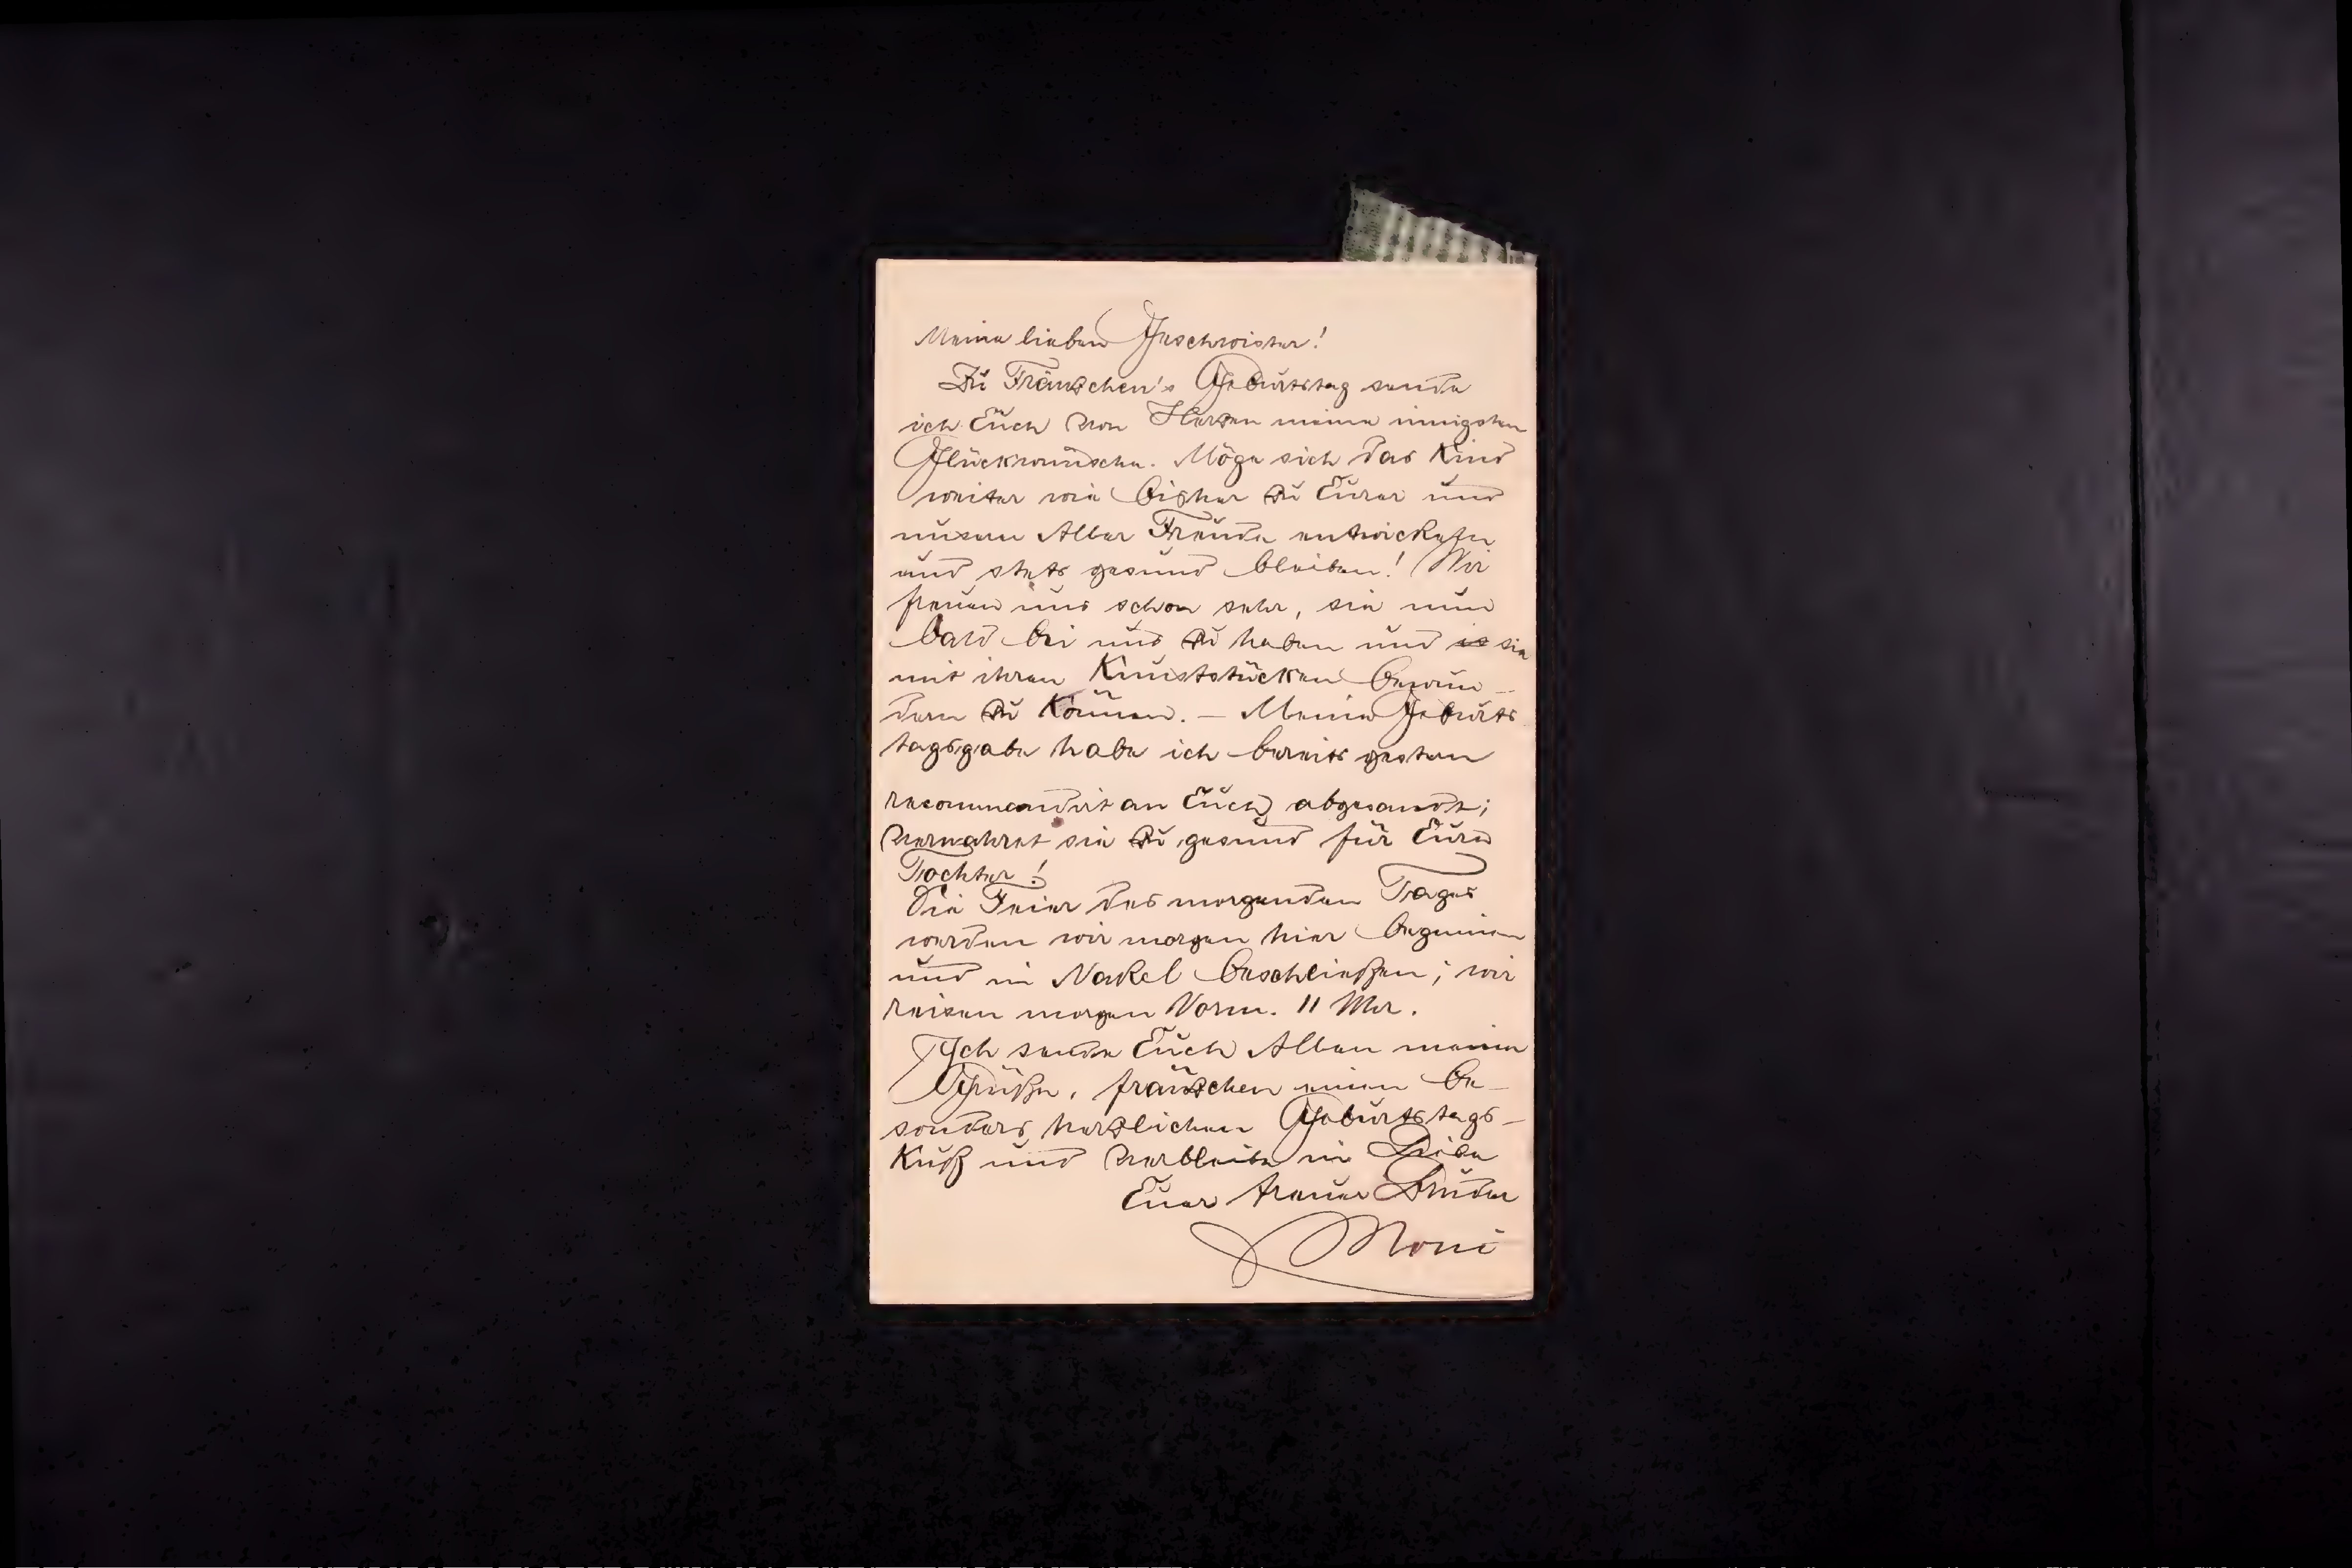 Meine lieben Geschwister!
Zu Fränzchen's Geburtstag sende
ich Euch von Herzen meine innigsten
Glückwünsche. Möge sich das Kind
weiter wie bisher zu Eurer und
unsern Aller Freude entwickeln
und stets gesund bleiben! Wir
freuen uns schon sehr, sie nun
bald bei uns zu haben und sie
mit ihren Kunststücken bewun-
dern zu können. – Meine Geburts
tagsgabe habe ich bereits gestern
recommandirt an Euch abgesandt;
verwahret sie zu gesund für Eure
Tochter!
Die Feier des morgenden Tages
werden wir morgen hier beginnen
und in Nakel beschließen; wir
reisen morgen Vorm. 11 Uhr.
Ich sende Euch Allen meine
Grüße, fränzchen einen be-
sonders herzlichen Geburtstags-
Kuß und verbleibe in Liebe
Euer treuer Bruder
Moni